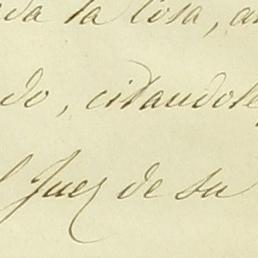 da la cosa, a
do, citandole
l Juez de su